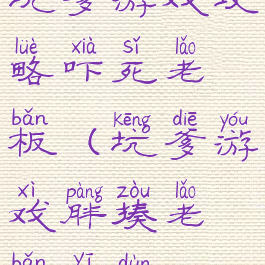 lüè xià sǐ lǎo
略吓死老
bǎn kēng diē yóu
板（坑爹游
xì pàng zòu lǎo
戏胖揍老
bǎn Yī dùn